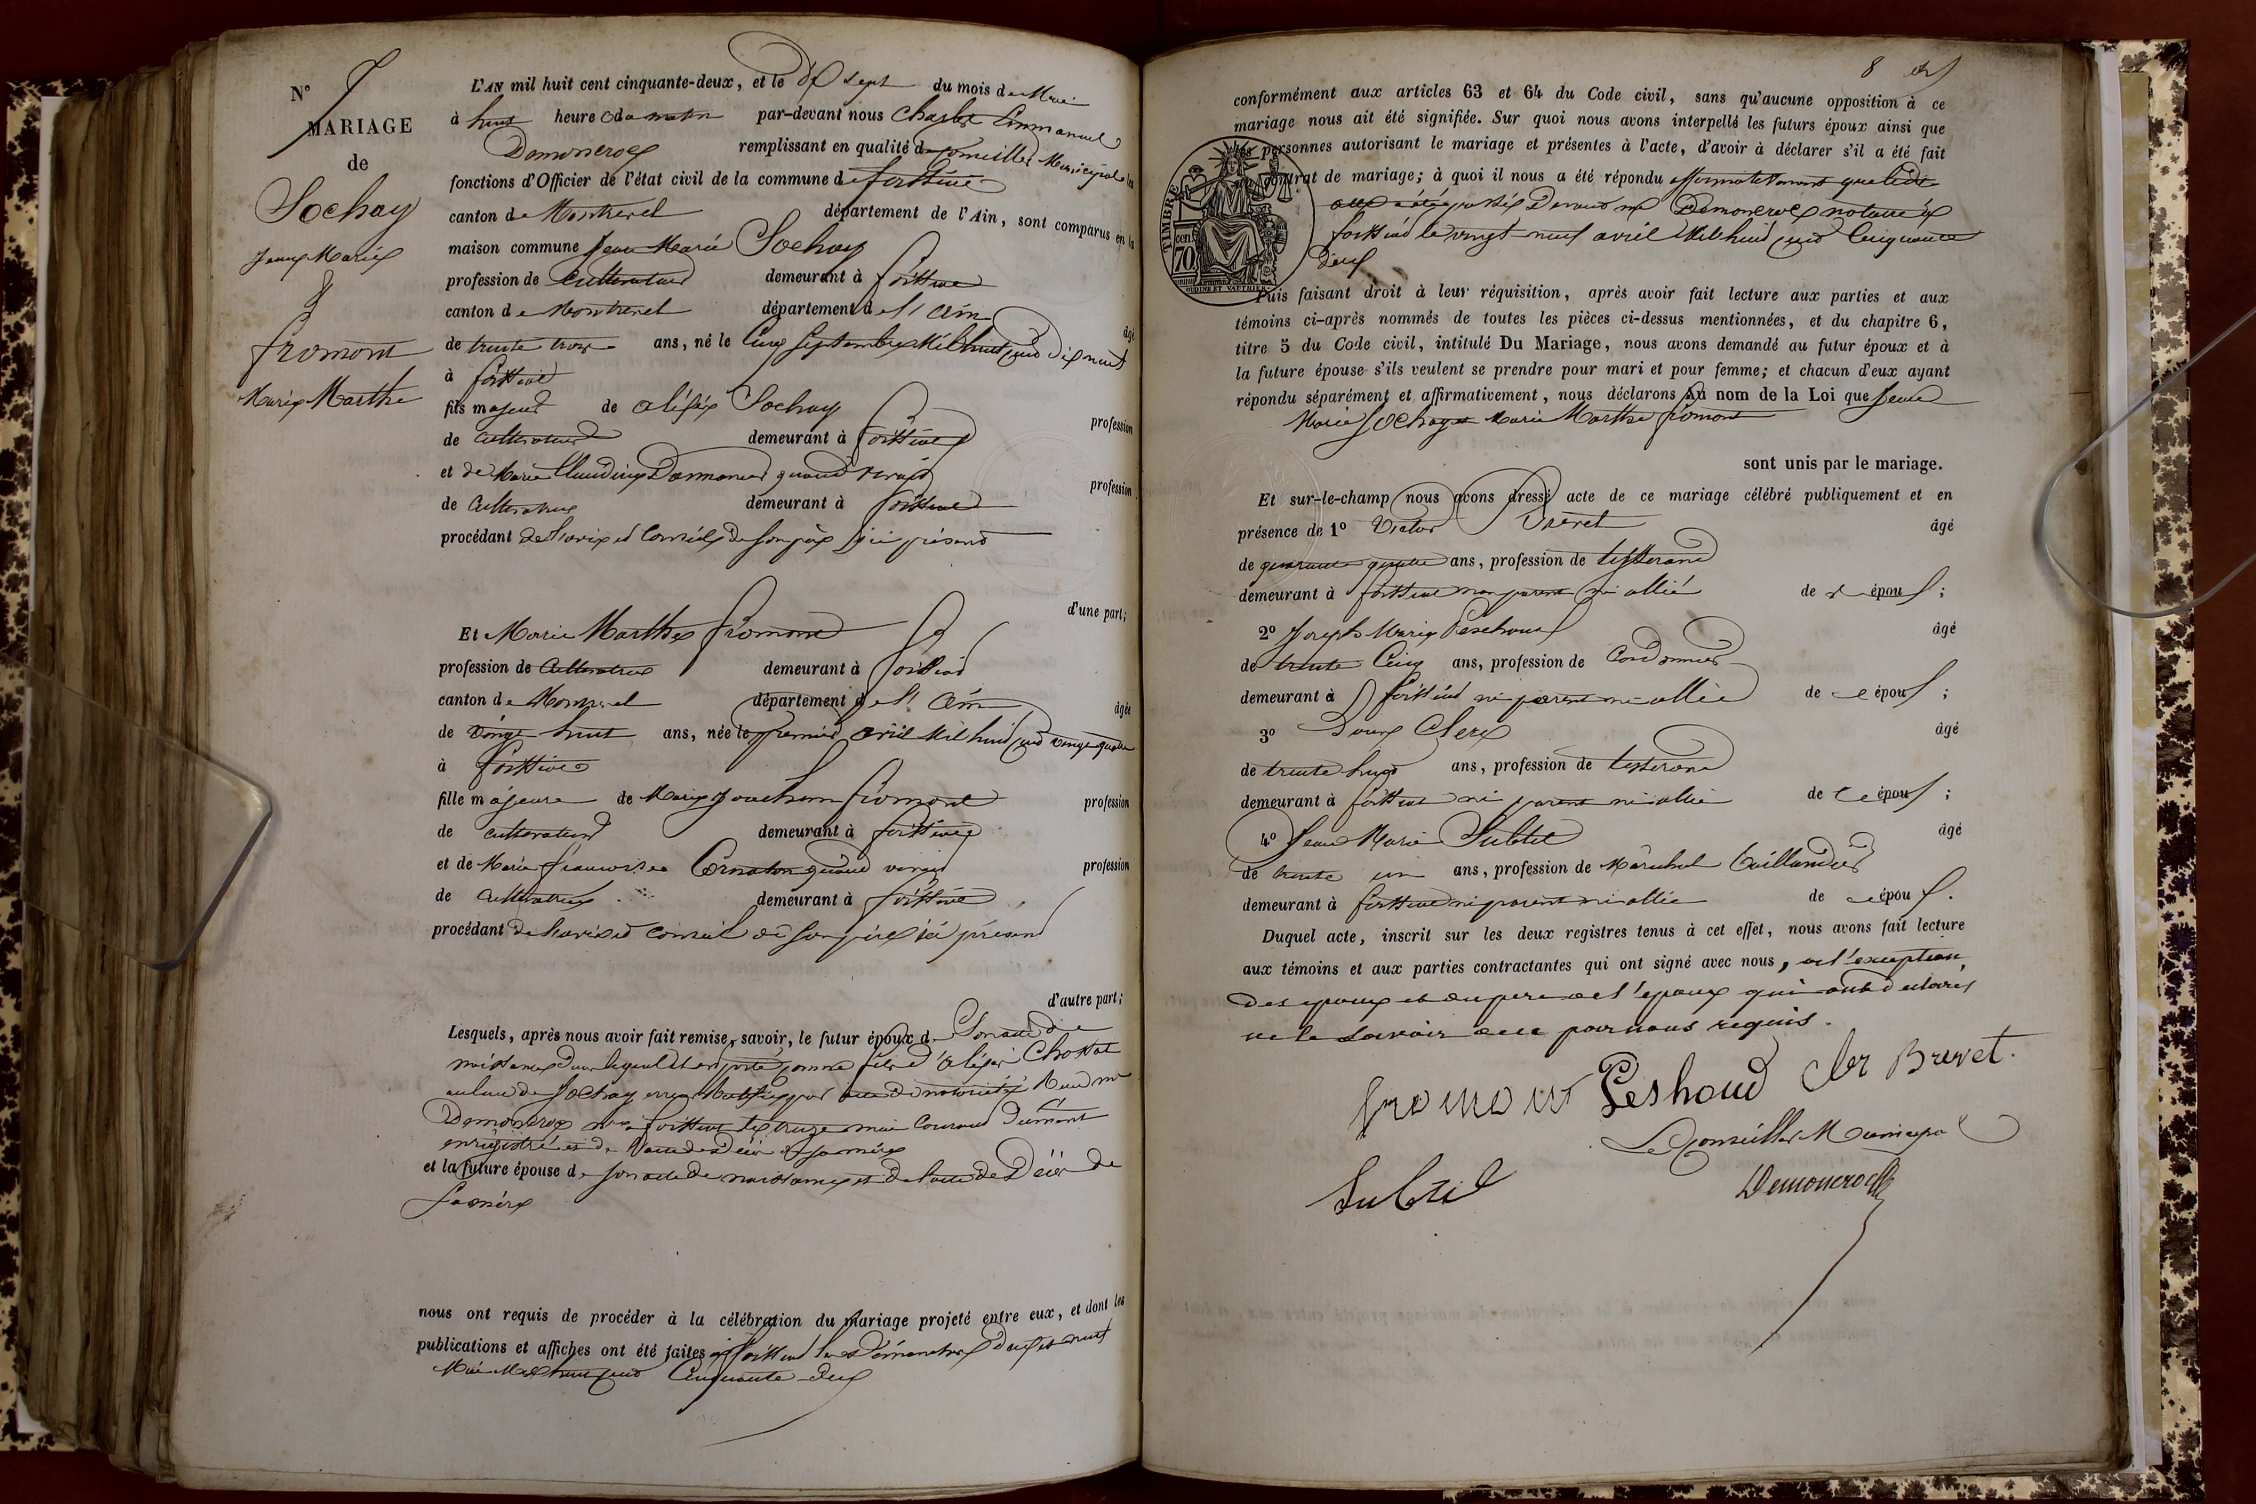 N° 7
MARIAGE
de
Sochay
Jean Marie
&
fromont
Marie Marthe
L'AN mil huit cent cinquante-deux, et le dix sept du mois de Mai
à huit heure du matin par-devant nous Charles Emmanuel
Demoncroc remplissant en qualité de Conseiller Municipal les
fonctions d'Officier de l'état civil de la commune de
canton de Montrevel département de l'Ain, sont comparus en la
maison commune Jean Marie Sochay
profession de Cultivateur demeurant à
canton de Montrevel département de l'ain âgé
de trente trois ans, né le Cinq Septembre Mil huit cent dix neuf
à
fils majeur de aléxis Sochay profession
de Cultivateur demeurant à
et de Marie Claudine quand vivait profession
de Cultivatrice demeurant à
procédant de l'avis et Conseil de son père ici présent
d'une part;
Et Marie Marthe fromont
profession de Cultivatrice demeurant à
canton de Montrevel département de l'ain âgée
de vingt huit ans, née le premier avril Mil huit cent vingt quatre
à
fille majeure de Marie Joachim fromont profession
de Cultivateur demeurant à
et de Marie francoise Cornaton quand vivait profession
de Cultivatrice demeurant à
procédant de l'avis et Conseil de son père ici présent
d'autre part;
Lesquels, après nous avoir fait remise, savoir, le futur époux de Son acte de
naissance dans lequel il est porté comme fils d'aléxis
au lieu de Sochay erreur par acte de notoriété
Demoncroc mai Courant
enregistré et de l'acte de Décès de sa mère
et la future épouse de son acte de naissance et de l'acte de Décès de
sa mère
nous ont requis de procéder à la célébration du mariage projeté entre eux, et dont les
publications et affiches ont été faites à les Dimanches deux et neuf
Mai Mil huit cent Cinquante deux
8
conformément aux articles 63 et 64 du Code civil, sans qu'aucune opposition à ce
mariage nous ait été signifiée. Sur quoi nous avons interpellé les futurs époux ainsi que
les personnes autorisant le mariage et présentes à l'acte, d'avoir à déclarer s'il a été fait
contrat de mariage; à quoi il nous a été répondu affirmativement que ledit
acte a été passé Devant me Demoncroc notaire à
le vingt neuf avril Mil huit cent Cinquante
deux
TIMBRE
70
Puis faisant droit à leur réquisition, après avoir fait lecture aux parties et aux
témoins ci-après nommés de toutes les pièces ci-dessus mentionnées, et du chapitre 6,
titre 5 du Code civil, intitulé Du Mariage, nous avons demandé au futur époux et à
la future épouse s'ils veulent se prendre pour mari et pour femme; et chacun d'eux ayant
répondu séparément et affirmativement, nous déclarons au nom de la Loi que Jean
Marie Sochay et Marie Marthe fromont
sont unis par le mariage.
Et sur-le-champ nous avons dressé acte de ce mariage célébré publiquement et en
présence de 1° Victor Brevet âgé
de quarante quatre ans, profession de tisserand
demeurant à non parent ni allié de s époux;
2° Joseph Marie âgé
de trente Cinq ans, profession de Cordonnier
demeurant à ni parent ni allié de s époux;
3° Clerc âgé
de trente huit ans, profession de tisserand
demeurant à ni parent ni allié de s époux;
4° Jean Marie Subtil âgé
de trente un ans, profession de Maréchal taillandier
demeurant à ni parent ni allié de s époux.
Duquel acte, inscrit sur les deux registres tenus à cet effet, nous avons fait lecture
aux témoins et aux parties contractantes qui ont signé avec nous, a l'exception
des epoux et du pere de l'epoux qui ont declarés
ne le savoir de ce par nous requis.
fromont Peshoud Cler Brevet.
Le Conseiller Municipal
Subtil Demoncroc